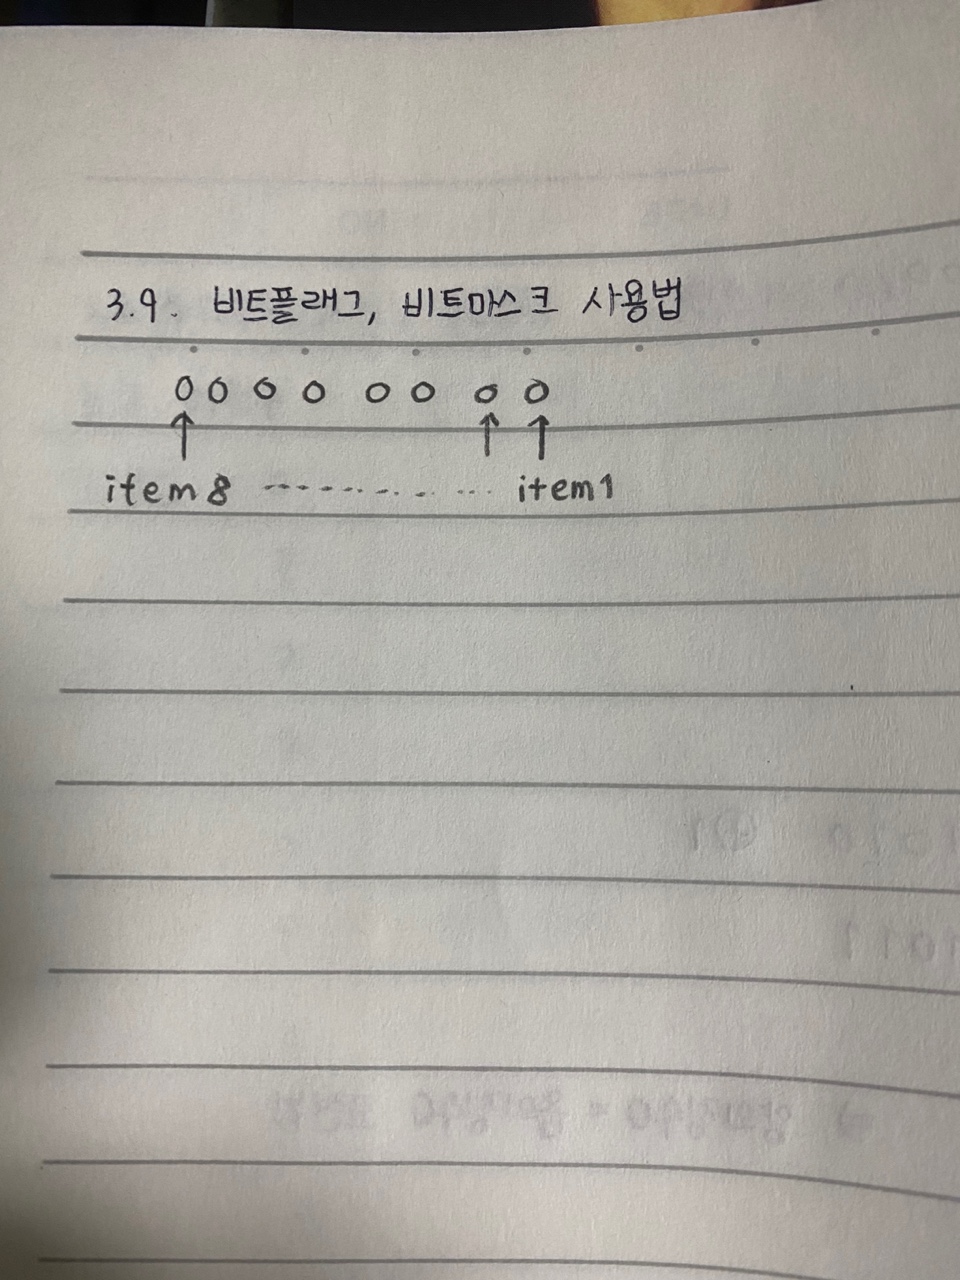 3.9. 비트플래그, 비트마스크 사용법
0 0 0 0 0 0 0 0
↑ ↑ ↑
item8 ------------ item1